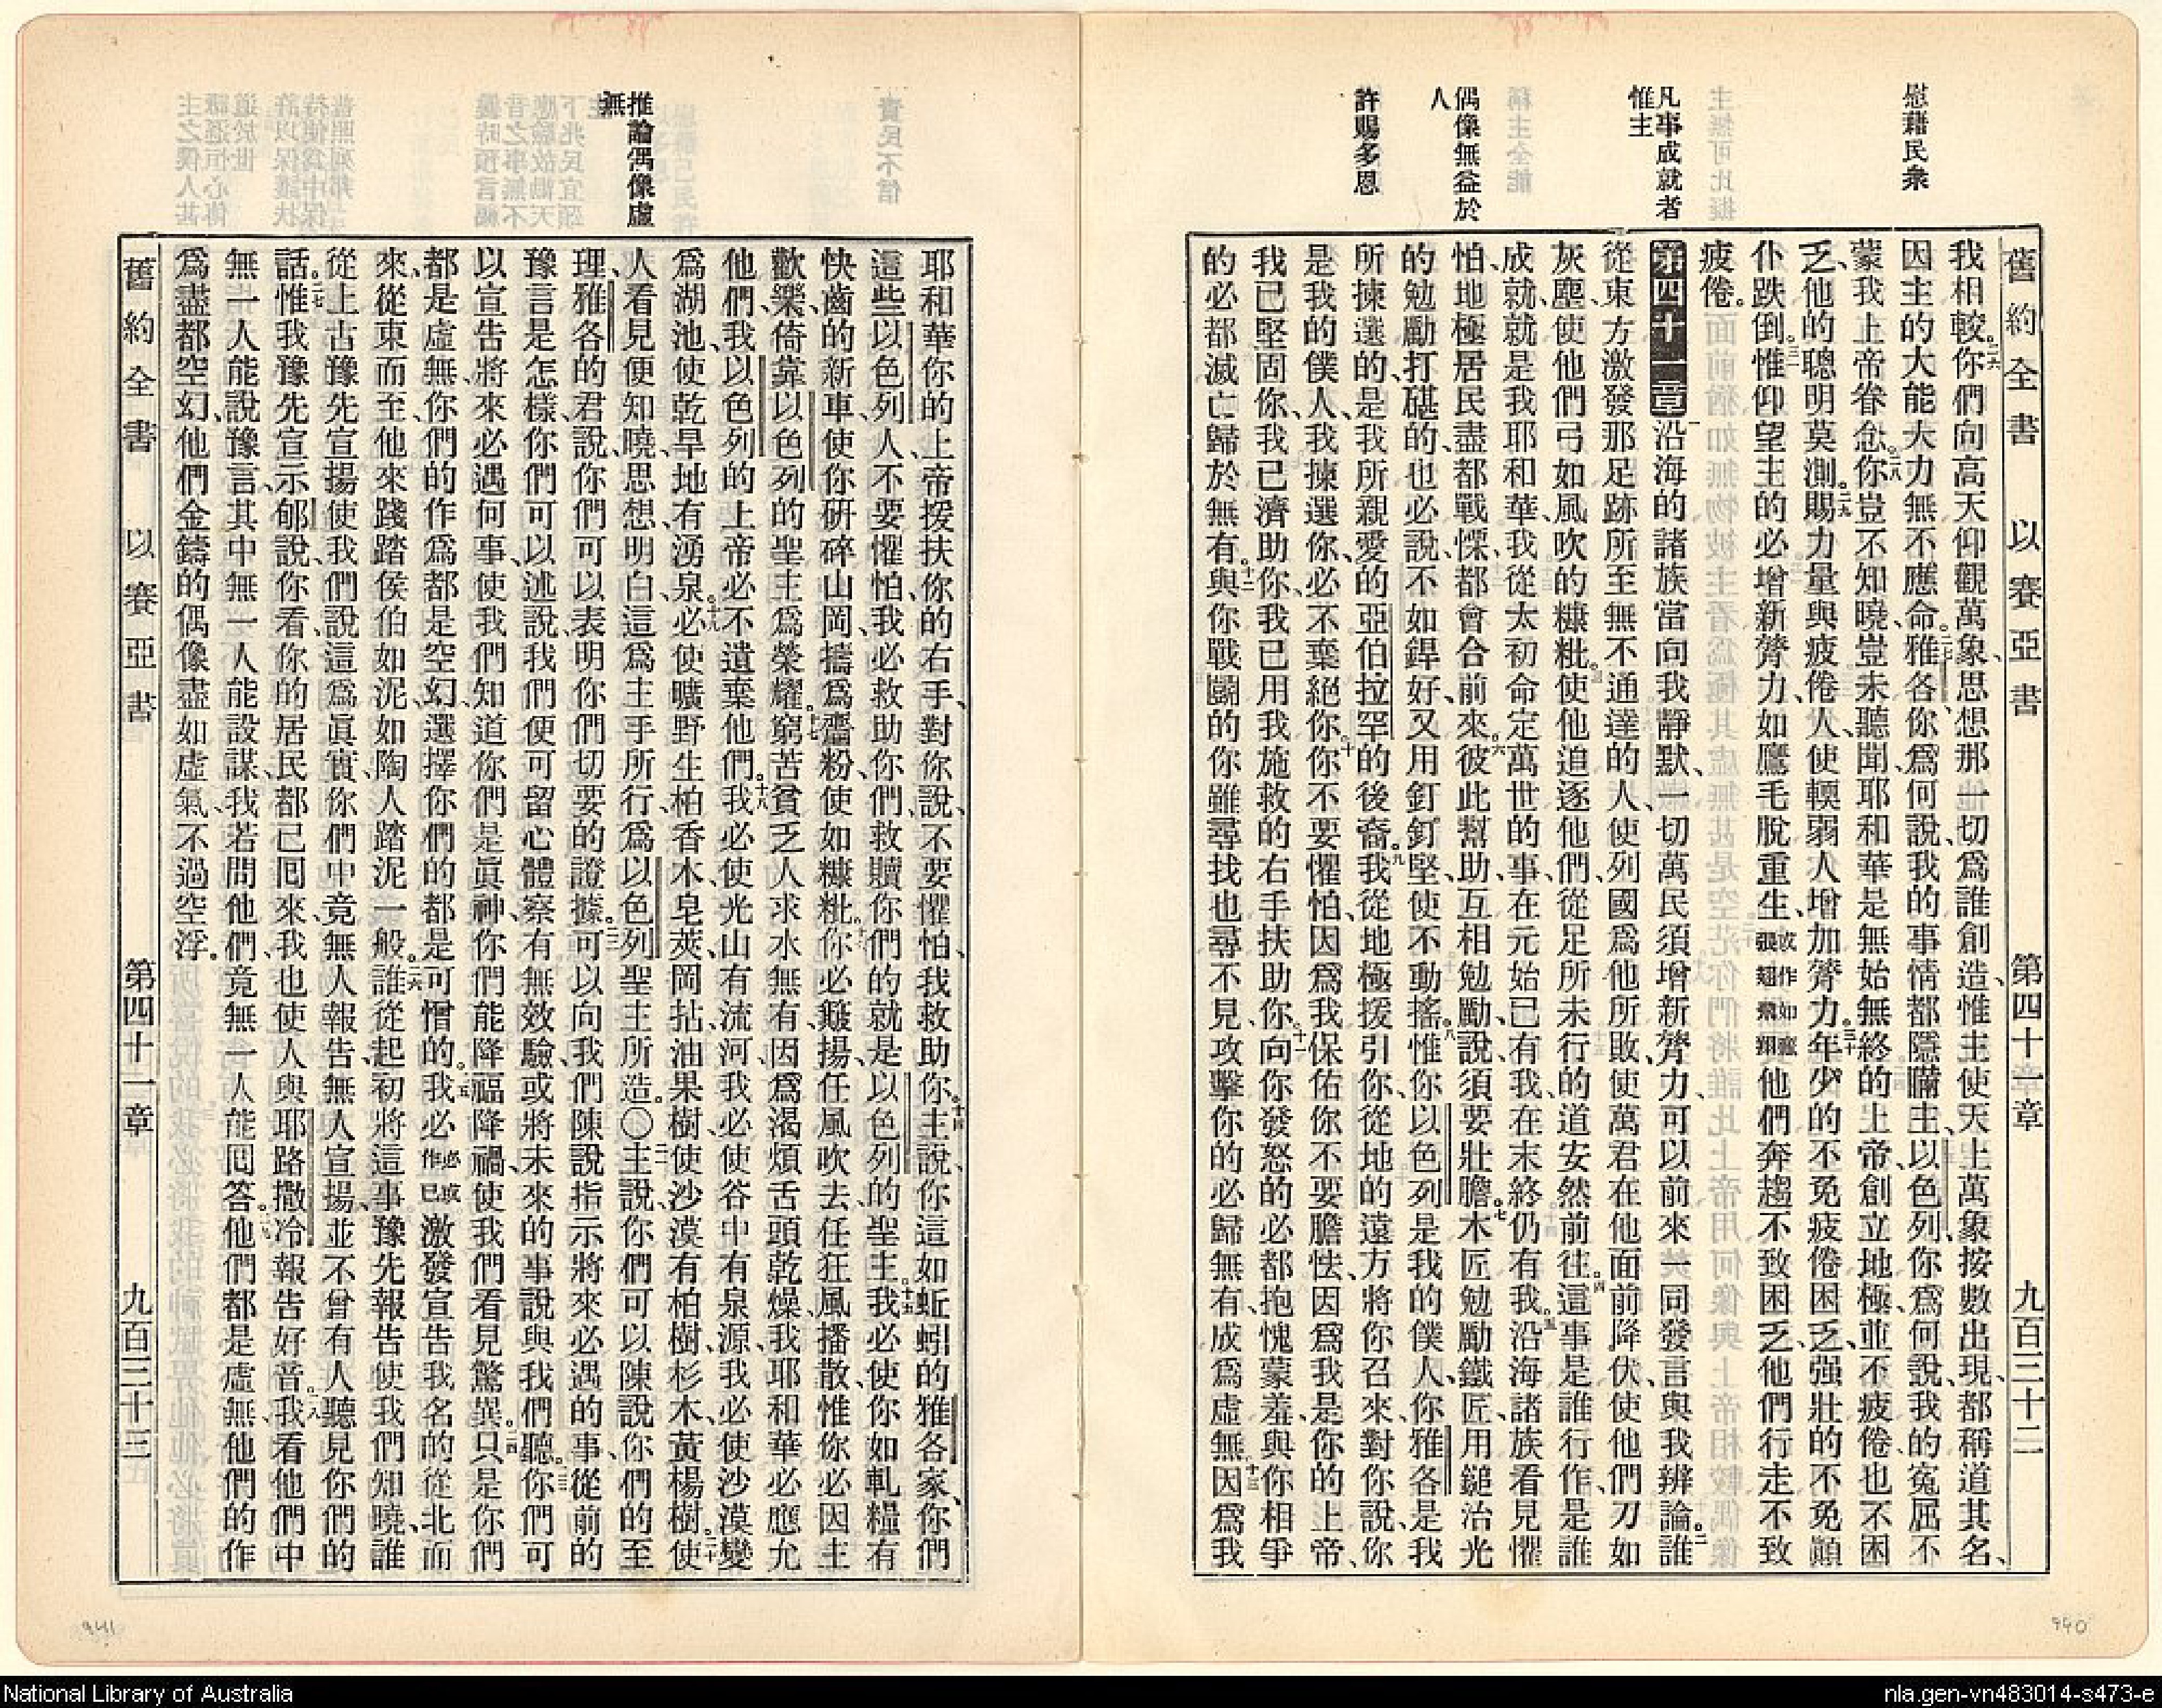 慰藉民衆
凡事成就者
惟主
偶像無益於
人
許賜多恩
舊約全書 以賽亞書 第四十一章 九百三十二
我相較。二六你們向高天仰觀萬象、思想那一切爲誰創造、惟主使天上萬象按數出現、都稱道其名、
因主的大能大力無不應命。二七雅各、你爲何說、我的事情都隱瞞主、以色列、你爲何說、我的寃屈不
蒙我上帝眷念。二八你豈不知曉、豈未聽聞、耶和華是無始無終的上帝、創立地極、並不疲倦、也不困
乏、他的聰明莫測。二九賜力量與疲倦人、使輭弱人增加膂力。三十年少的不免疲倦困乏、强壯的不免顚
仆跌倒。三一惟仰望主的必增新膂力、如鷹毛脫重生、或作如鷹張翅飛翔他們奔趨不致困乏、他們行走不致
疲倦。
第四十一章 一沿海的諸族當向我靜默、一切萬民須增新膂力、可以前來一同發言、與我辨論。二誰
從東方激發那足跡所至無不通達的人、使列國爲他所敗、使萬君在他面前降伏、使他們刃如
灰塵、使他們弓如風吹的糠粃。三使他追逐他們、從足所未行的道安然前往。四這事是誰行作、是誰
成就、就是我耶和華、我從太初命定萬世的事、在元始已有我、在末終仍有我。五沿海諸族看見懼
怕、地極居民盡都戰慄、都會合前來。六彼此幫助、互相勉勵說、須要壯膽。七木匠勉勵鐵匠、用鎚治光
的勉勵打碪的、也必說、不如銲好、又用釘釘堅、使不動搖。八惟你以色列是我的僕人、你雅各是我
所揀選的、是我所親愛的亞伯拉罕的後裔。九我從地極援引你、從地的遠方將你召來、對你說、你
是我的僕人、我揀選你、必不棄絕你。十你不要懼怕、因爲我保佑你、不要膽怯、因爲我是你的上帝、
我已堅固你、我已濟助你、我已用我施救的右手扶助你。十一向你發怒的必都抱愧蒙羞、與你相爭
的必都滅亡、歸於無有。十二與你戰鬭的、你雖尋找也尋不見、攻擊你的必歸無有、成爲虛無。十三因爲我
推論偶像虛
無
耶和華你的上帝援扶你的右手、對你說、不要懼怕、我救助你。十四主說、你這如蚯蚓的雅各家、你們
這些以色列人不要懼怕、我必救助你們、救贖你們的就是以色列的聖主。十五我必使你如軋糧有
快齒的新車、使你研碎山岡、擣爲齏粉、使如糠粃。十六你必簸揚、任風吹去、任狂風播散、惟你必因主
歡樂、倚靠以色列的聖主爲榮耀。十七窮苦貧乏人求水無有、因爲渴煩舌頭乾燥、我耶和華必應允
他們、我以色列的上帝必不遺棄他們。十八我必使光山有流河、我必使谷中有泉源、我必使沙漠變
爲湖池、使乾旱地有湧泉。十九必使曠野生柏香木、皂莢、岡拈、油果樹、使沙漠有柏樹、杉木、黃楊樹。二十使
人看見便知曉、思想明白、這爲主手所行、爲以色列聖主所造。〇二一主說、你們可以陳說你們的至
理、雅各的君說、你們可以表明你們切要的證據。二二可以向我們陳說、指示將來必遇的事、從前的
豫言是怎樣、你們可以述說、我們便可留心體察有無效驗、或將未來的事說與我們聽。二三你們可
以宣告將來必遇何事、使我們知道你們是眞神、你們能降福降禍、使我們看見驚異。二四只是你們
都是虛無、你們的作爲都是空幻、選擇你們的都是可憎的。二五我必必或作已激發宣告我名的從北而
來、從東而至、他來踐踏侯伯如泥、如陶人踏泥一般。二六誰從起初將這事豫先報告、使我們知曉、誰
從上古豫先宣揚、使我們說這爲眞實、你們中竟無人報告、無人宣揚、並不曾有人聽見你們的
話。二七惟我豫先宣示郇說、你看、你的居民都已囘來、我也使人與耶路撒冷報告好音。二八我看他們中
無一人能說豫言、其中無一人能設謀、我若問他們、竟無一人能囘答。二九他們都是虛無、他們的作
爲盡都空幻、他們金鑄的偶像盡如虛氣、不過空浮。
舊約全書 以賽亞書 第四十一章 九百三十三
941
940
National Library of Australia
nla.gen-vn483014-s473-e